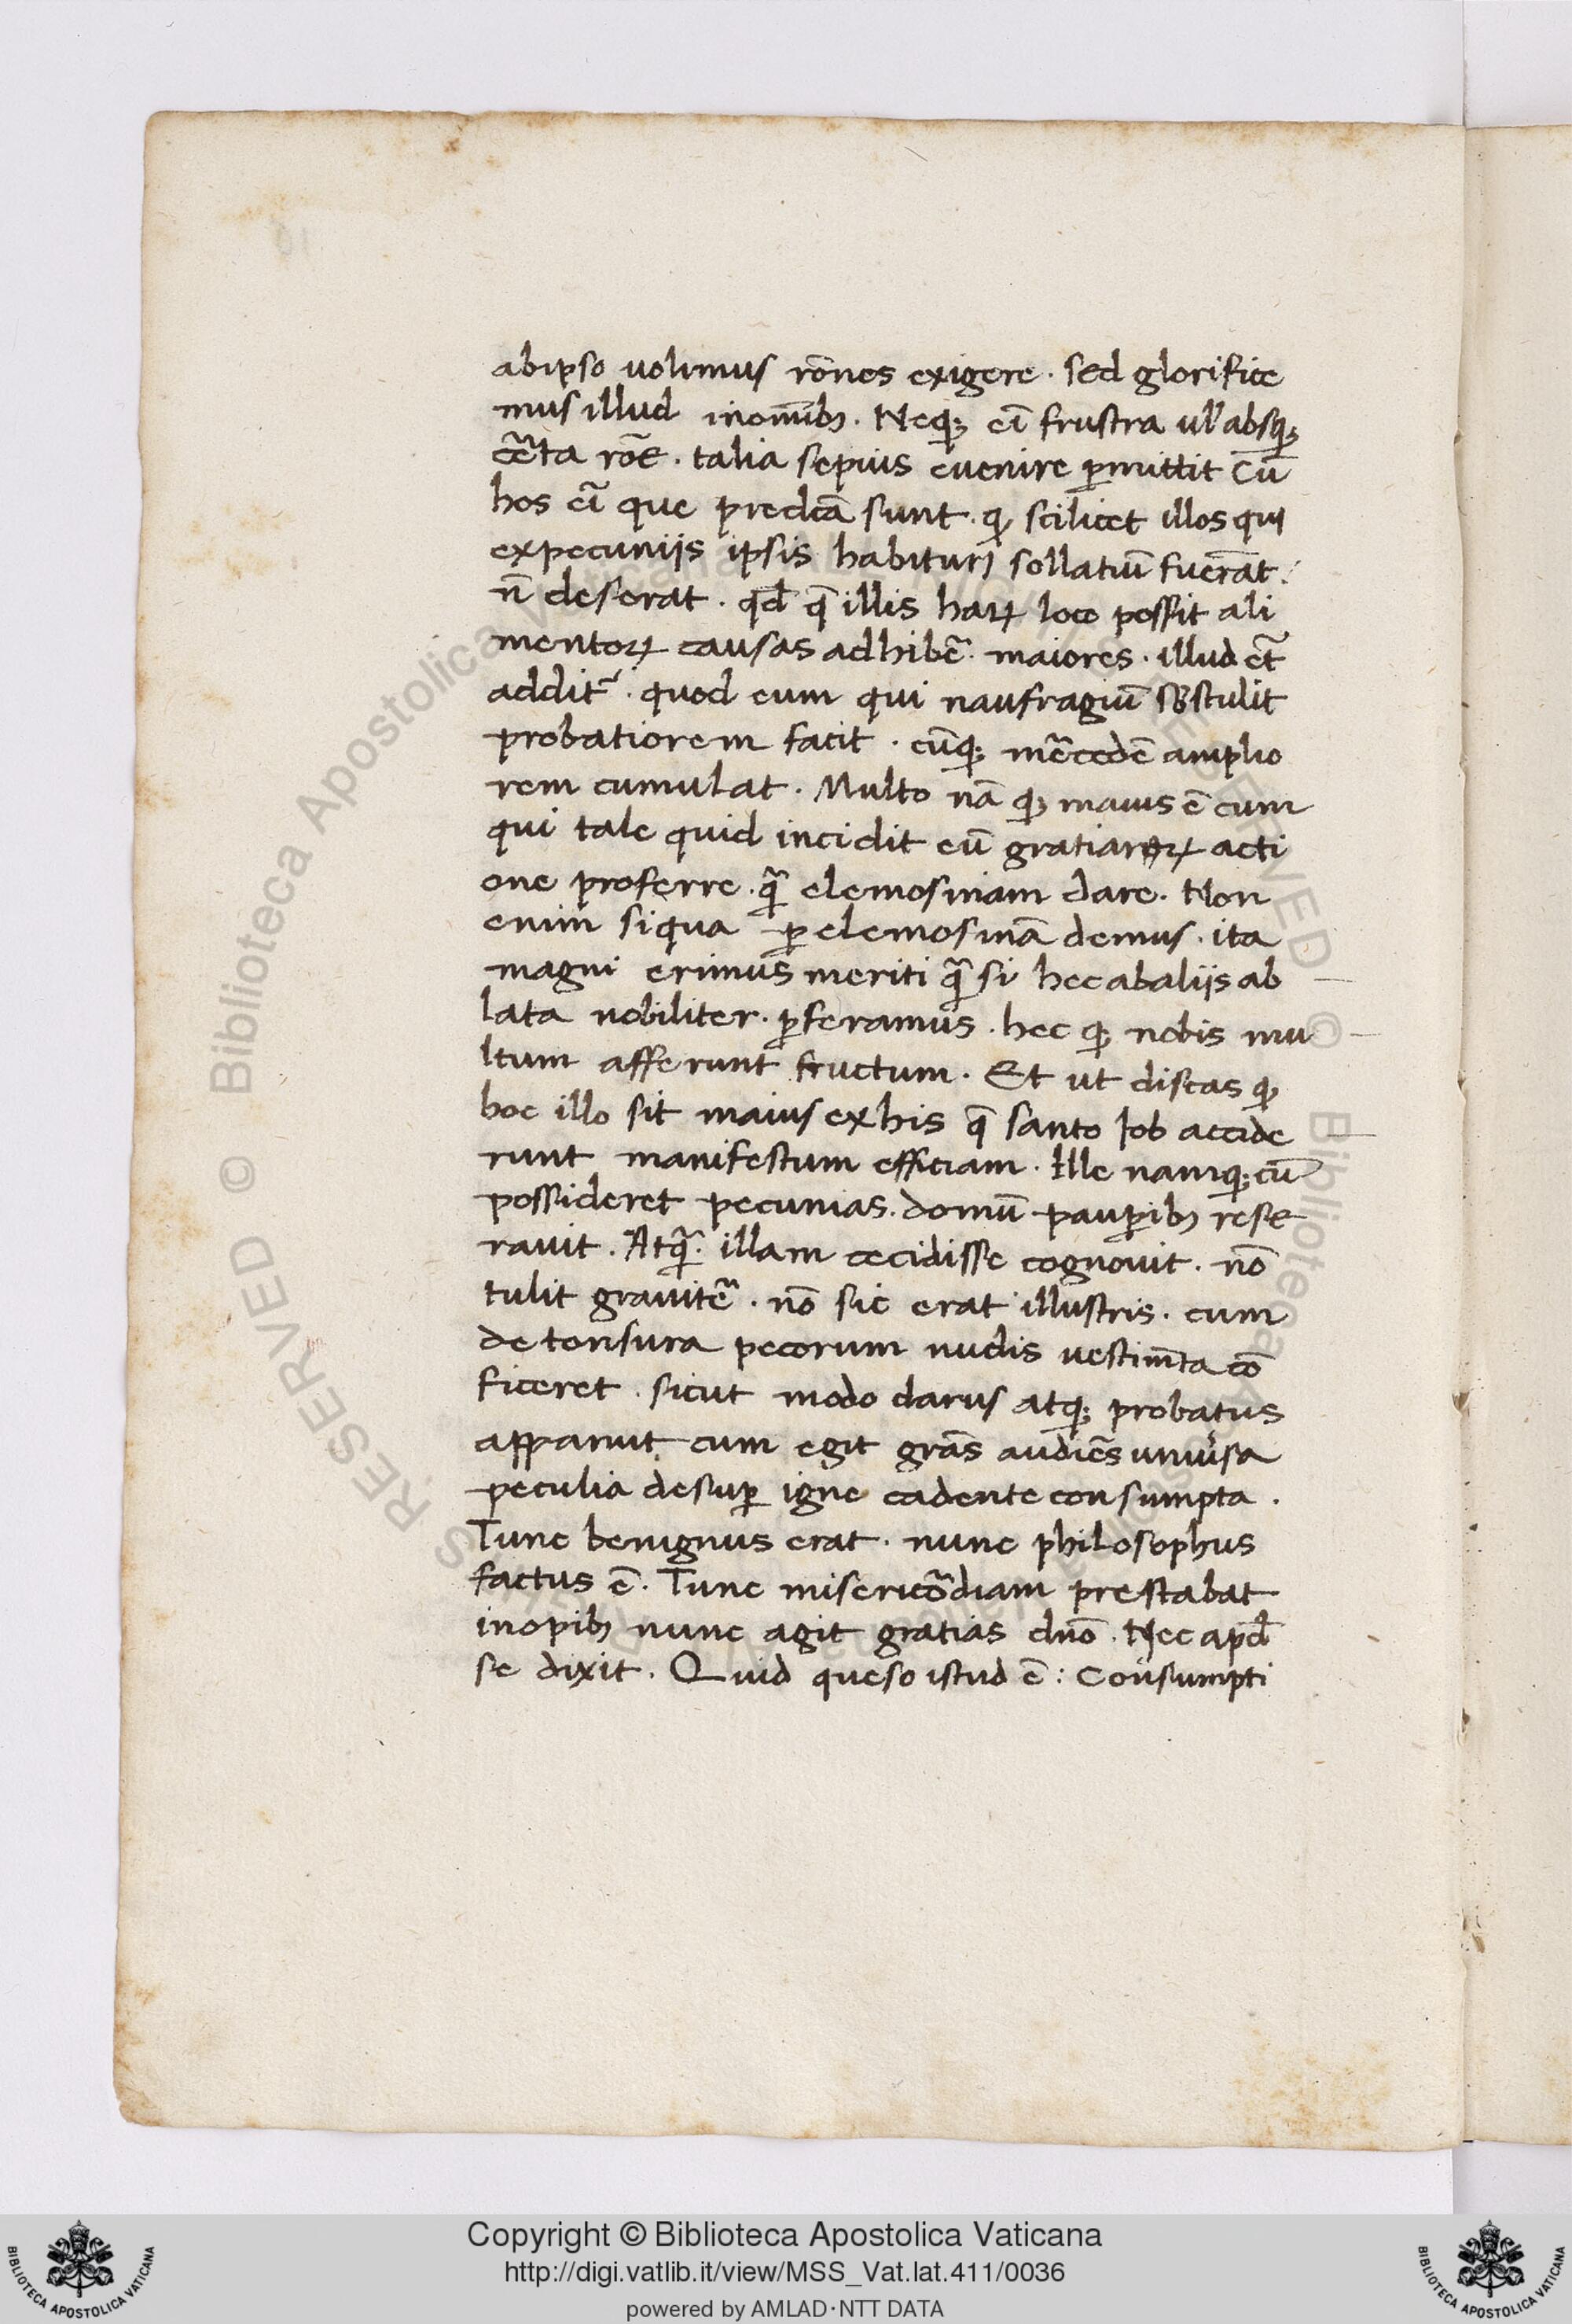 abipso uolumus rōnes exigere · sed glorifice
mus illud inomībꝫ · Neqꝫ ei᷈ frustra ul' absqꝫ
cẽta rōe · talia sepius euenire ꝑmittit Cū
hos ei᷈ que predca᷈ sunt · qꝫ scilicet illos qui
expecuniis ipsis habituri sollatiū fuerāt ·
n̄ deserat · qd̄ q̄ illis haꝝ loco possit ali
mentoꝝ causas adhibe᷈ · maiores · illud et᷈
addit᷑ · quod eum qui naufragiū sustulit
probatiorem facit · cūqꝫ me᷈cedē amplio
rem cumulat · Multo nā qꝫ maius ē cum
qui tale quid incidit cū gratiaroꝝ acti
one proferre · qᷓ elemosinam dare · Non
enim siqua ꝑ elemosinā demus · ita
magni erimus meriti qᷓ si hec abaliis ab
lata nobiliter · ꝑferamus · hec qꝫ nobis mu
ltum afferunt fructum · Et ut discas qꝫ
hoc illo sit maius exhis q̄ santo Iob accide
runt manifestum efficiam · Ille namqꝫ cū
possideret pecunias · domū pauꝑibꝫ rese
rauit · Atqᷓ · illam cecidisse cognouit · nō
tulit grauite᷈ · nō sic erat illustris · cum
de tonsura pecorum nudis uestim̄ta cō
ficeret · sicut modo clarus atqꝫ probatus
apparuit cum egit grās audiēs uniu᷈sa
peculia desuꝑ igne cadente consumpta ·
Tunc benignus erat · nunc philosophus
factus ē · Tunc miserico᷈diam prestabat
inopibꝫ nunc agit gratias dn̄o · Nec apd̄
se dixit · Quid queso istud ē : Consumpti
Copyright © Biblioteca Apostolica Vaticana
http://digi.vatlib.it/view/MSS_Vat.lat.411/0036
powered by AMLAD·NTT DATA
BIBLIOTECA APOSTOLICA VATICANA
BIBLIOTECA APOSTOLICA VATICANA